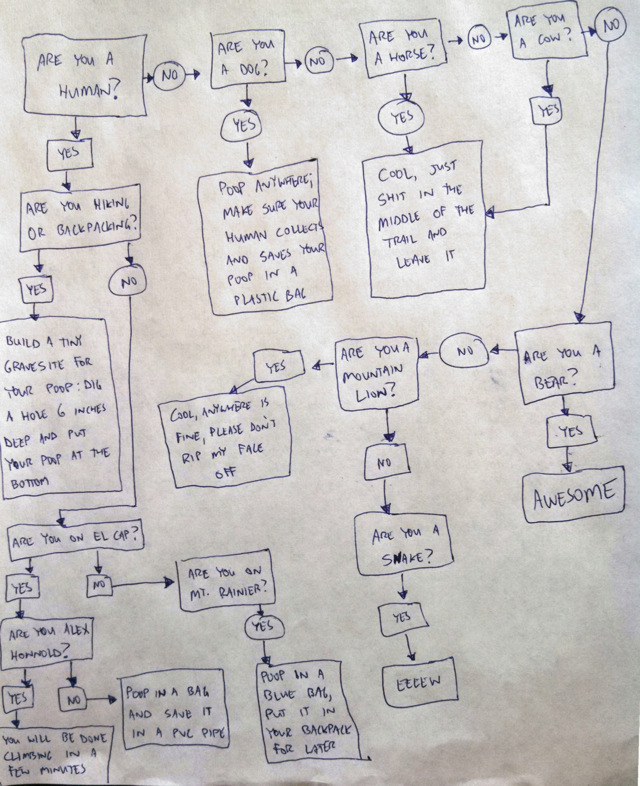 ARE YOU A
HUMAN?
NO
ARE YOU
A DOG?
NO
ARE YOU
A HORSE?
NO
ARE YOU
A COW?
NO
YES
YES
YES
YES
ARE YOU HIKING
OR BACKPACKING?
POOP ANYWHERE;
MAKE SURE YOUR
HUMAN COLLECTS
AND SAVES YOUR
POOP IN A
PLASTIC BAG
COOL, JUST
SHIT IN THE
MIDDLE OF THE
TRAIL AND
LEAVE IT
YES
NO
BUILD A TINY
GRAVESITE FOR
YOUR POOP: DIG
A HOLE 6 INCHES
DEEP AND PUT
YOUR POOP AT THE
BOTTOM
YES
ARE YOU A
MOUNTAIN
LION?
NO
ARE YOU A
BEAR?
COOL, ANYWHERE IS
FINE, PLEASE DON'T
RIP MY FACE
OFF
NO
YES
AWESOME
ARE YOU ON EL CAP?
ARE YOU A
SNAKE?
YES
NO
ARE YOU ON
MT. RAINIER?
YES
YES
EEEEW
ARE YOU ALEX
HONNOLD?
YES
NO
POOP IN A BAG
AND SAVE IT
IN A PVC PIPE
POOP IN A
BLUE BAG,
PUT IT IN
YOUR BACKPACK
FOR LATER
YOU WILL BE DONE
CLIMBING IN A
FEW MINUTES